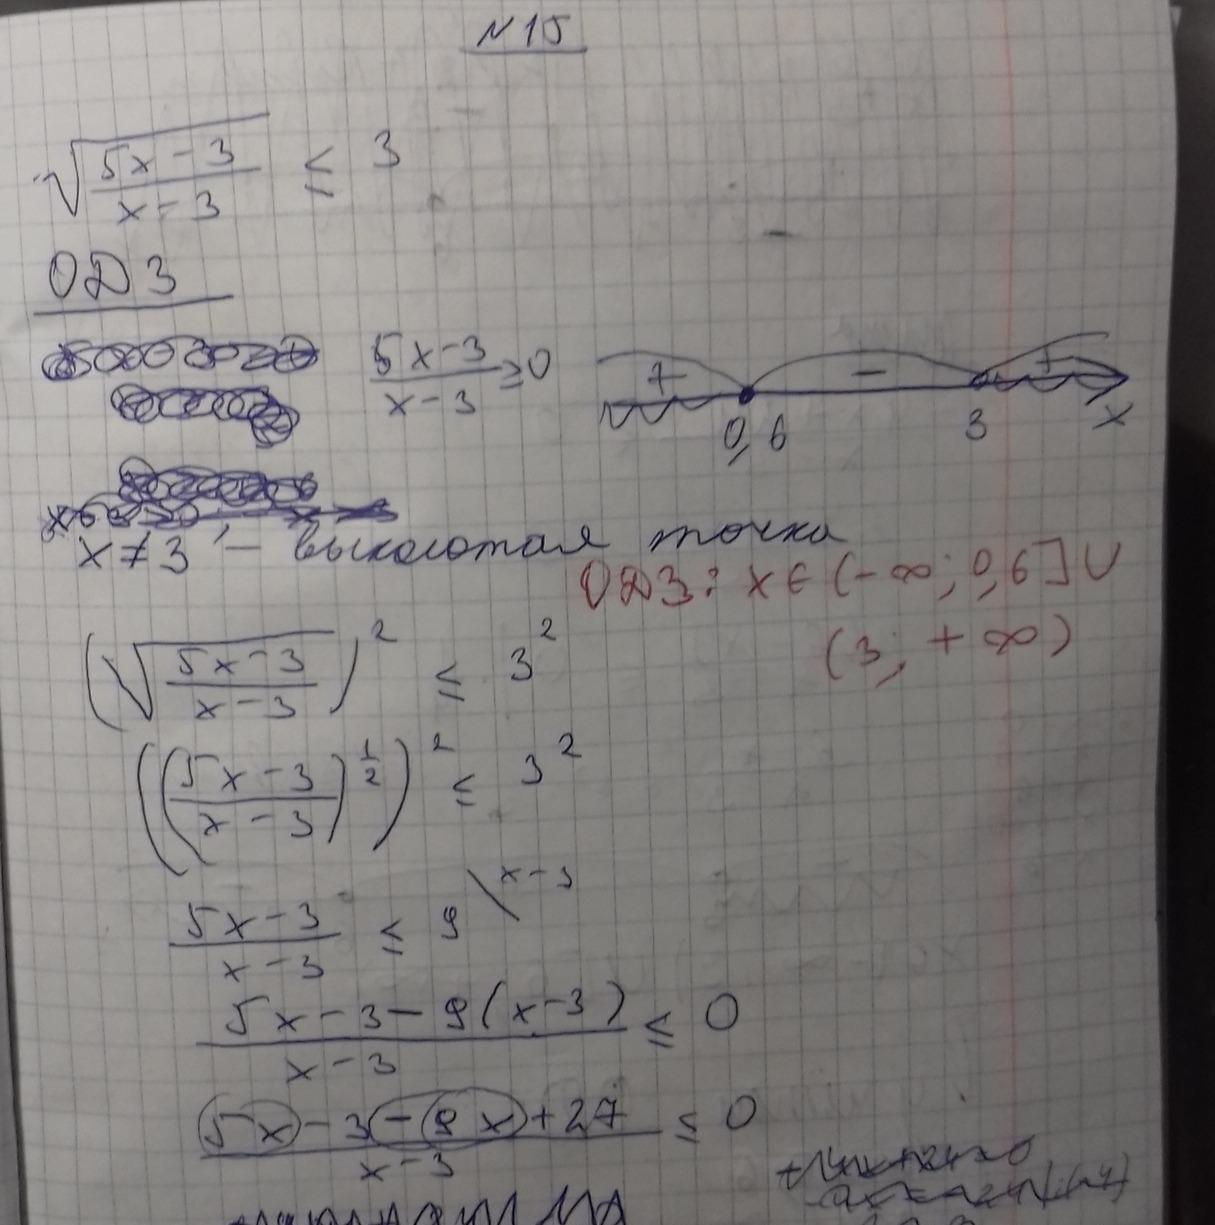 №15
√((5x-3)/(x-3)) ≤ 3
ОДЗ
(5x-3)/(x-3) ≥ 0
+ - +
0,6 3 x
x≠3 - выколотая точка
ОДЗ: x∈(-∞; 0,6]∪
(3; +∞)
(√((5x-3)/(x-3)))² ≤ 3²
(((5x-3)/(x-3))^(1/2))² ≤ 3²
(5x-3)/(x-3) ≤ 9 \x-3
(5x-3-9(x-3))/(x-3) ≤ 0
(5x-3-9x+27)/(x-3) ≤ 0